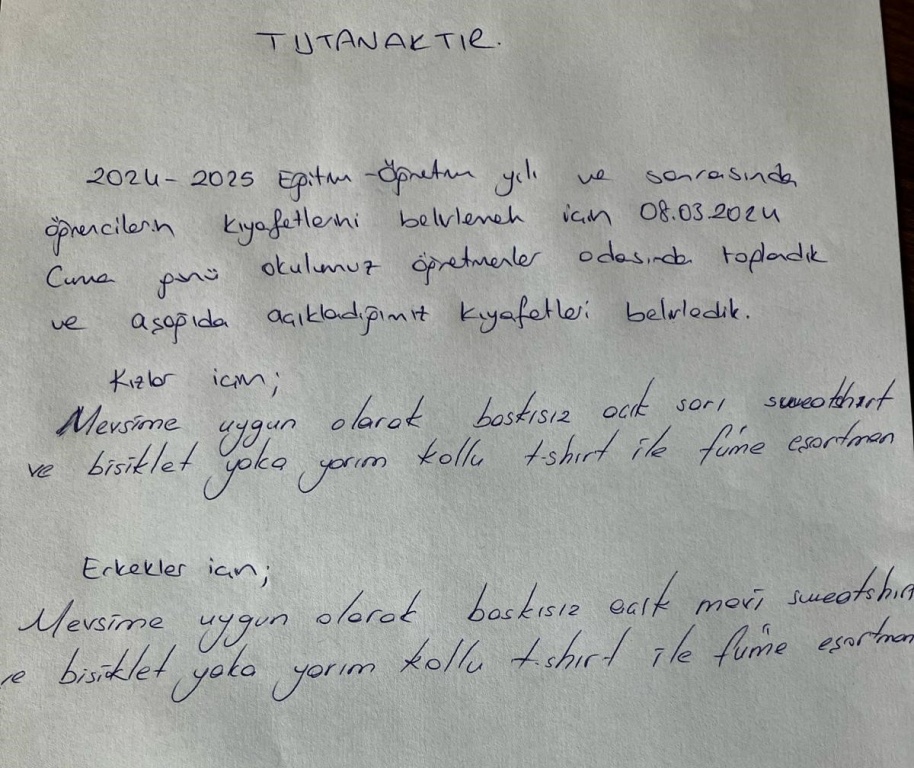 TUTANAKTIR.
2024-2025 Eğitim-Öğretim yılı ve sonrasında
öğrencilerin kıyafetlerini belirlemek için 08.03.2024
Cuma günü okulumuz öğretmenler odasında toplandık
ve aşağıda açıkladığımız kıyafetleri belirledik.
Kızlar için;
Mevsime uygun olarak baskısız açık sarı sweatshırt
ve bisiklet yaka yarım kollu t-shırt ile füme eşortman
Erkekler için;
Mevsime uygun olarak baskısız açık mavi sweatshırt
ve bisiklet yaka yarım kollu t-shırt ile füme eşortman